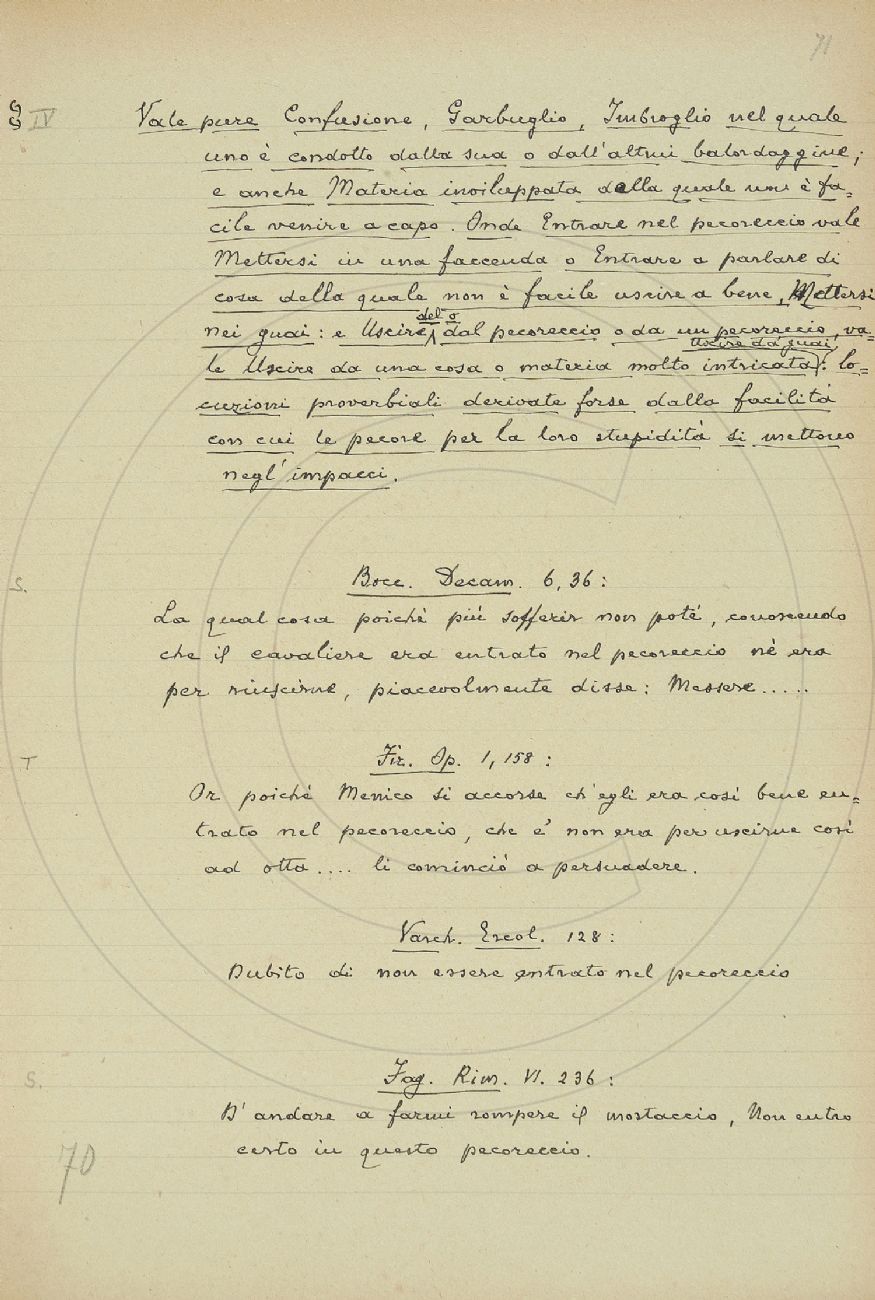 71
§ IV Vale pure Confusione, Garbuglio, Imbroglio nel quale
uno è condotto dalla sua o dall'altrui balordaggine;
e anche Materia inviluppata della quale non è fa=
cile venire a capo. Onde Entrare nel pecoreccio vale
Mettersi in una faccenda o Entrare a parlare di
cosa della quale non è facile uscire a bene, Mettersi
nei guai: e Uscire del o dal pecoreccio o da un pecoreccio, va=
le Uscire da una cosa o materia molto intricata, Uscire da guai: lo=
cuzioni proverbiali derivate forse dalla facilità
con cui le pecore per la loro stupidità si mettono
negl'impacci.
S. Bocc. Decam. 6, 36:
La qual cosa poichè più sofferir non poté, conoscendo
che il cavaliere era entrato nel pecoreccio nè era
per riuscirne, piacevolmente disse: Messere.....
T Fir. Op. 1, 158:
Or poichè Menico si accorse ch'egli era così bene en=
trato nel pecoreccio, che e' non era per uscirne così
ad otta.... li cominciò a persuadere.
Varch. Ercol. 128:
Dubito di non essere entrato nel pecoreccio
S. Fag. Rim. VI. 236:
D'andare a farmi rompere il mostaccio, Non entro
certo in questo pecoreccio.
70